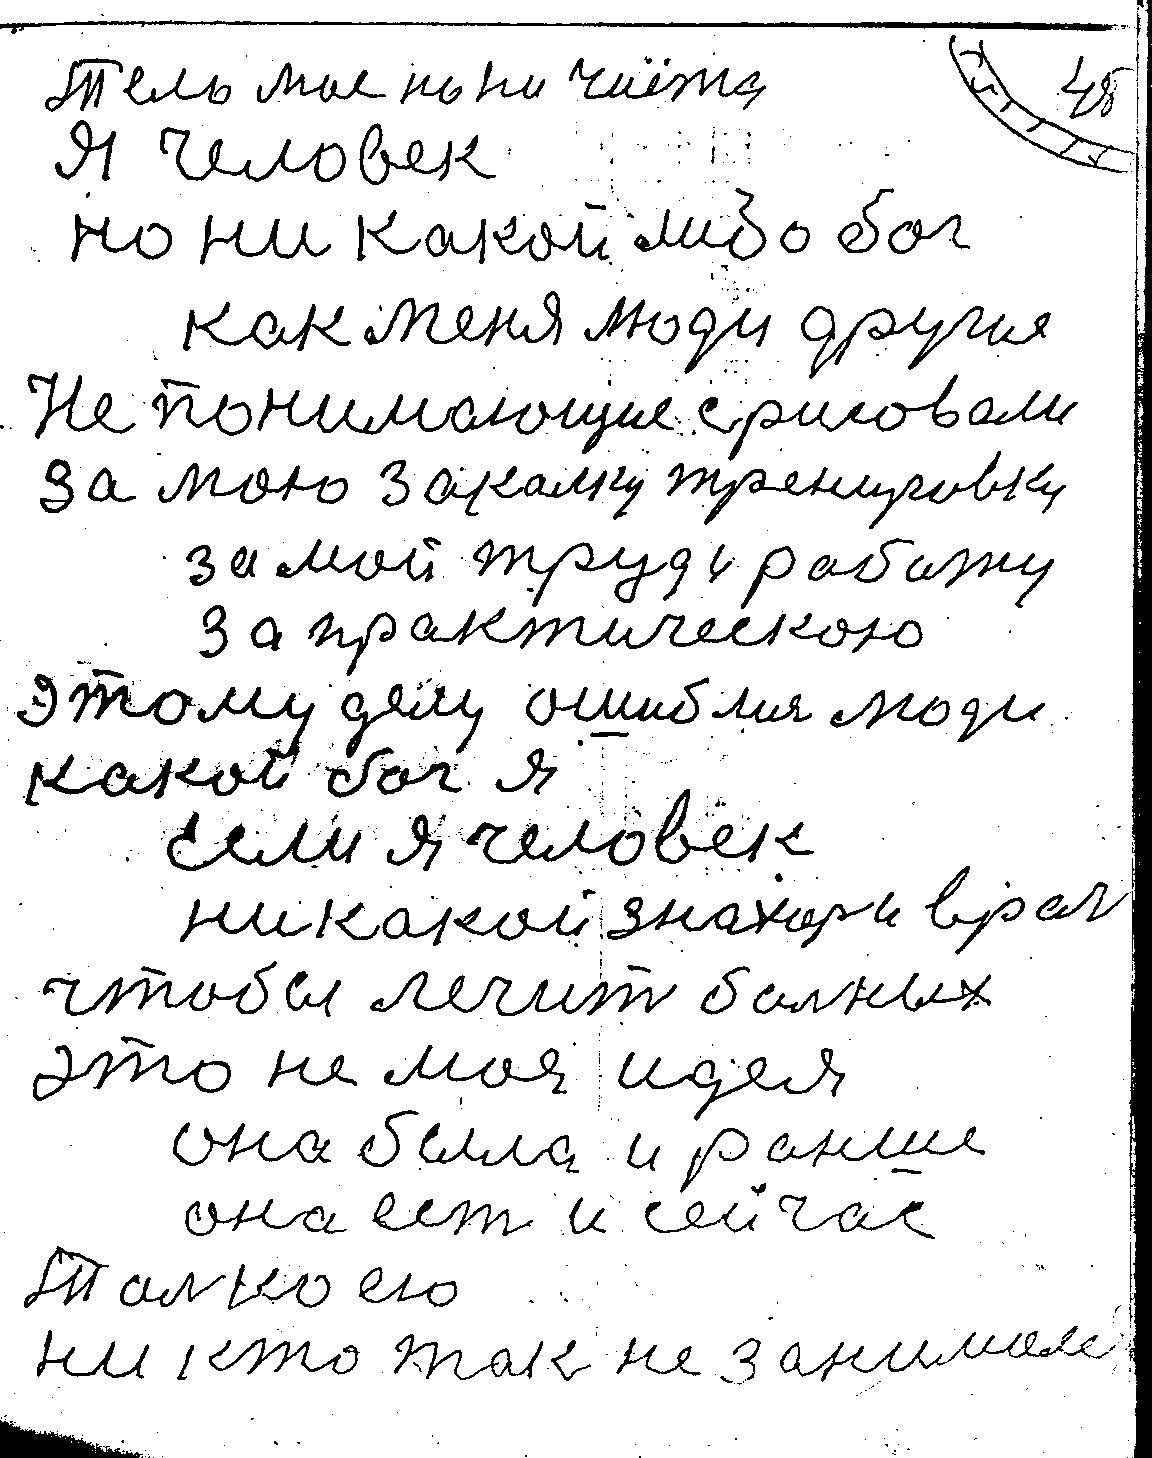 48
Тело мое но ни чиста
Я человек
но ни какой либо бог
как меня люди другия
Не понимающие срисовали
за мою закалку тренировку
за мой труд и работу
за практическою
этому делу ошиблия люди
какой бог я
если я человек
ни какой знахори врач
чтобы лечит болных
это не моя идея
она была и ранше
она ест и сейчас
Толко ею
ни кто так не занимале